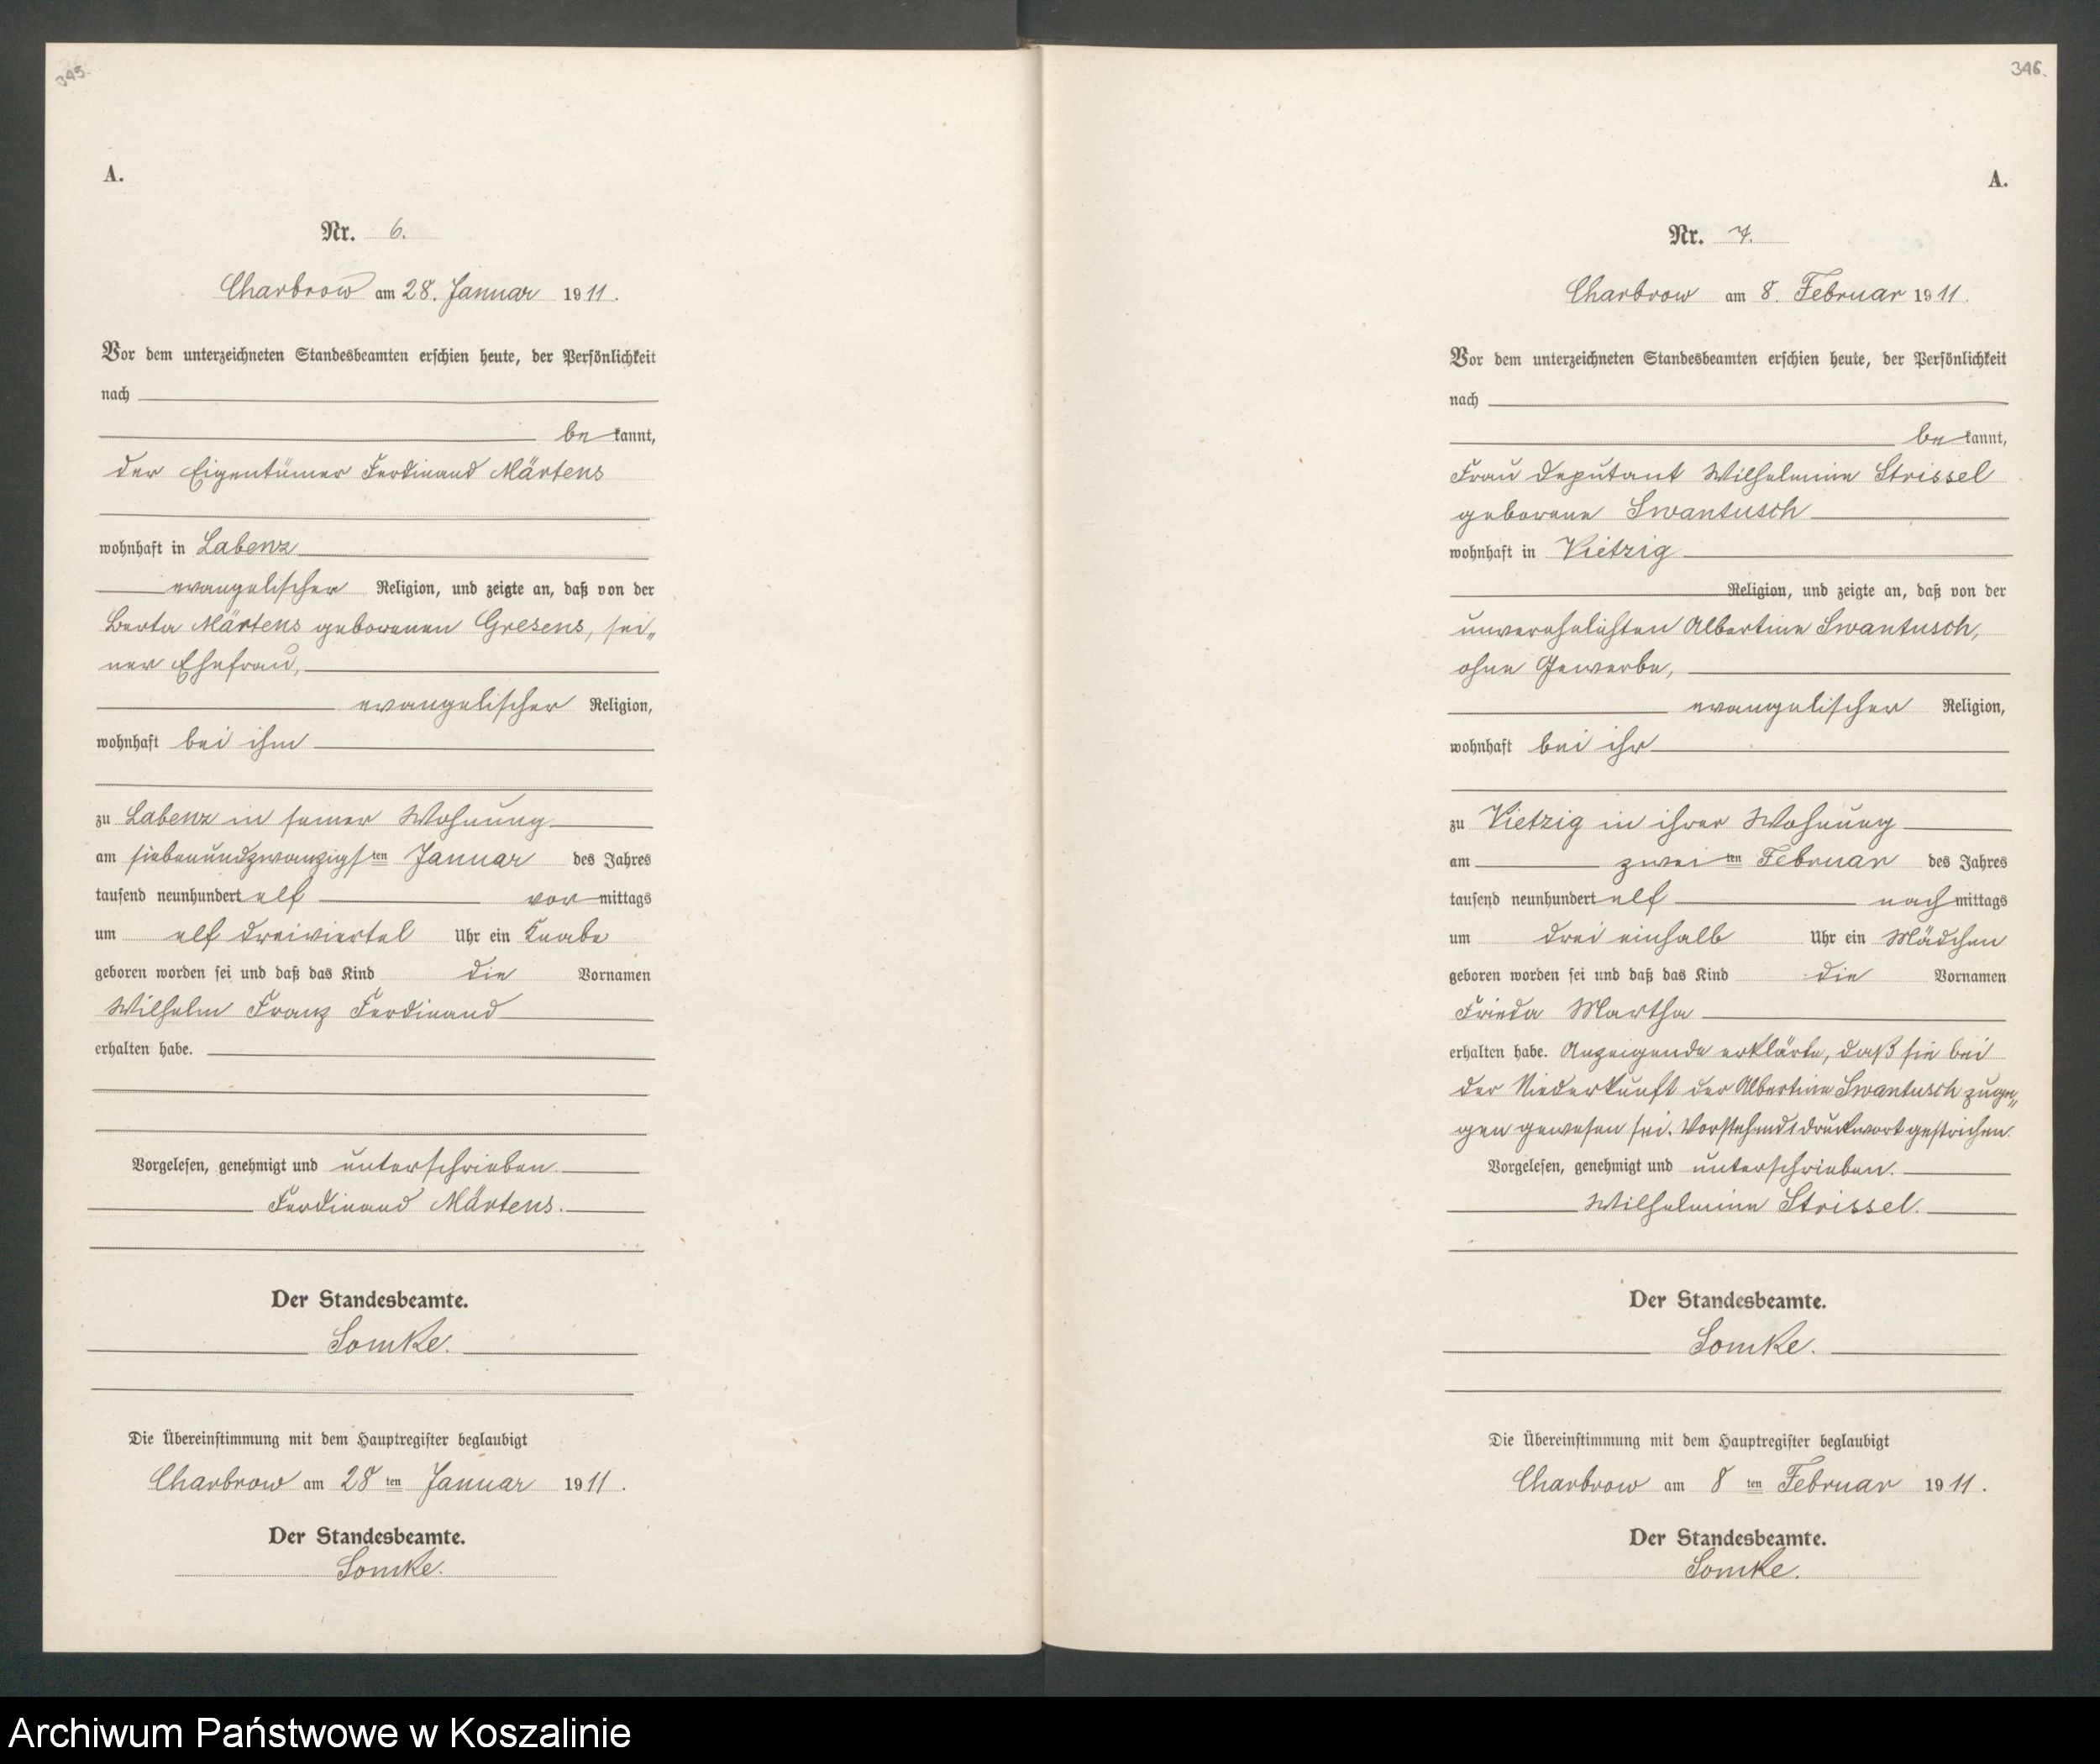 345.
A.
Nr. 6.
Charbrow am 28. Januar 1911.
Vor dem unterzeichneten Standesbeamten erschien heute, der Persönlichkeit
nach
be kannt,
der Eigentümer Ferdinand Märtens
wohnhaft in Labenz
evangelischer Religion, und zeigte an, daß von der
Berta Märtens geborenen Gresens, sei„
ner Ehefrau,
evangelischer Religion,
wohnhaft bei ihm
zu Labenz in seiner Wohnung
am siebenundzwanzigsten Januar des Jahres
tausend neunhundert elf vor mittags
um elf dreiviertel Uhr ein Knabe
geboren worden sei und daß das Kind die Vornamen
Wilhelm Franz Ferdinand
erhalten habe.
Vorgelesen, genehmigt und unterschrieben.
Ferdinand Märtens.
Der Standesbeamte.
Lomke.
Die Übereinstimmung mit dem Hauptregister beglaubigt
Charbrow am 28 ten Januar 1911.
Der Standesbeamte.
Lomke.
346.
A.
Nr. 7.
Charbrow am 8. Februar 1911.
Vor dem unterzeichneten Standesbeamten erschien heute, der Persönlichkeit
nach
be kannt,
Frau Deputant Wilhelmine Strissel
geborene Swantusch
wohnhaft in Vietzig
Religion, und zeigte an, daß von der
unverehelichten Albertine Swantusch,
ohne Gewerbe,
evangelischer Religion,
wohnhaft bei ihr
zu Vietzig in ihrer Wohnung
am zwei ten Februar des Jahres
tausend neunhundert elf nach mittags
um drei einhalb Uhr ein Mädchen
geboren worden sei und daß das Kind die Vornamen
Frieda Martha
erhalten habe. Anzeigende erklärte, daß sie bei
der Niederkunft der Albertine Swantusch zuge„
gen gewesen sei. Vorstehend 1 Druckwort gestrichen.
Vorgelesen, genehmigt und unterschrieben.
Wilhelmine Strissel.
Der Standesbeamte.
Lomke.
Die Übereinstimmung mit dem Hauptregister beglaubigt
Charbrow am 8 ten Februar 1911.
Der Standesbeamte.
Lomke.
Archiwum Państwowe w Koszalinie